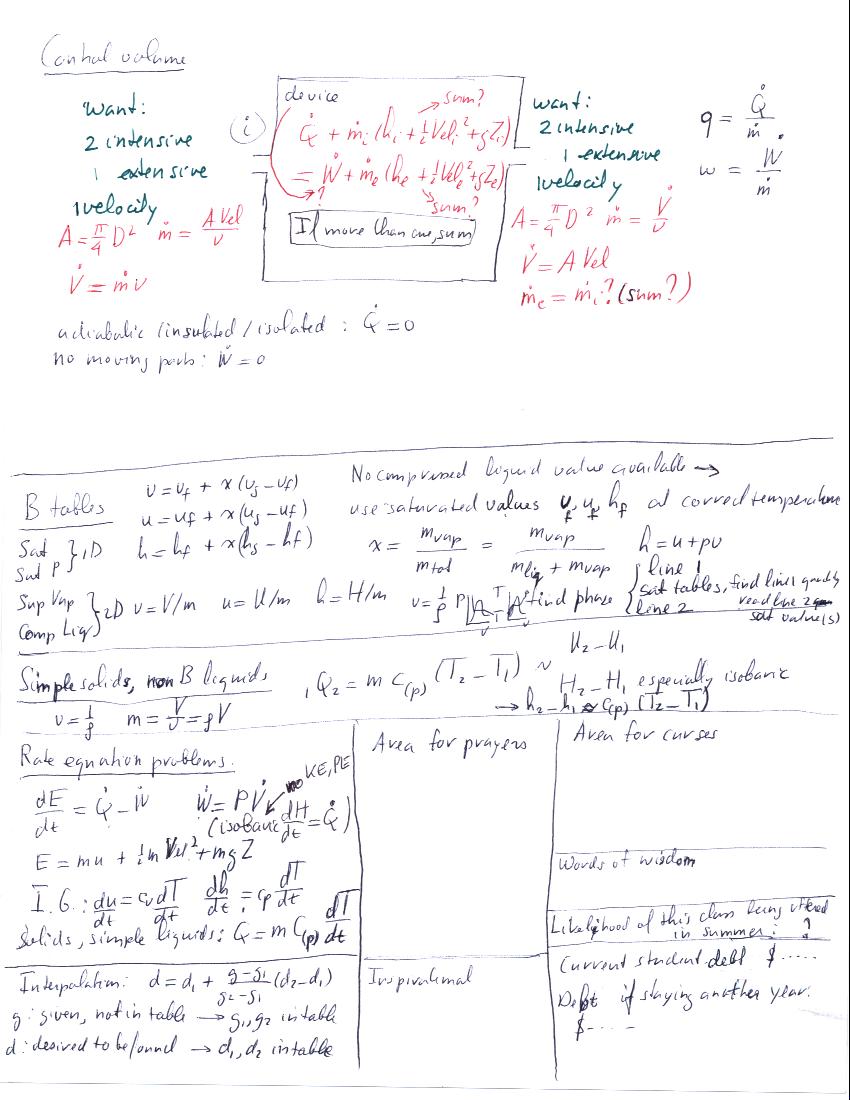 Control volume
want:
2 intensive
1 extensive
1 velocity
A = π/4 D² ṁ = A Vel / v
V̇ = ṁ v
i
device
sum?
Q̇ + ṁi (hi + ½Veli² + gZi)
= Ẇ + ṁe (he + ½Vele² + gZe)
?
sum?
If more than one, sum
want:
2 intensive
1 extensive
1 velocity
A = π/4 D² ṁ = V̇ / v
V̇ = A Vel
ṁe = ṁi? (sum?)
q = Q̇ / ṁ
w = Ẇ / ṁ
adiabatic / insulated / isolated : Q̇ = 0
no moving parts : Ẇ = 0
B tables
v = vf + x(vg - vf)
u = uf + x(ug - uf)
h = hf + x(hg - hf)
Sat T
Sat P } 1D
Sup Vap
Comp Liq } 2D
v = V/m u = U/m h = H/m
No compressed liquid value available →
use saturated values vf, uf, hf at correct temperature
x = mvap / mtot = mvap / (mliq + mvap) h = u + pv
v = 1/ρ P v T v find phase { line 1
sat tables, find line 1 quantity
line 2 read line 2
sat value(s)
Simple solids, non B liquids
v = 1/ρ m = V/v = ρV
1Q2 = m C(p) (T2 - T1) ~ U2 - U1
H2 - H1 especially isobaric
→ h2 - h1 ≈ C(p) (T2 - T1)
Rate equation problems.
no KE, PE
dE/dt = Q̇ - Ẇ Ẇ = PV̇
(isobaric dH/dt = Q̇)
E = mu + ½m Vel² + mgZ
I.G.: du/dt = cv dT/dt dh/dt = cp dT/dt
Solids, simple liquids: Q̇ = m C(p) dT/dt
Interpolation: d = d1 + (g - g1)/(g2 - g1) (d2 - d1)
g: given, not in table → g1, g2 in table
d: desired to be found → d1, d2 in table
Area for prayers
Inspirational
Area for curses
Words of wisdom
Likelihood of this class being offered
in summer: ?
Current student debt $.....
Debt if staying another year:
$.....